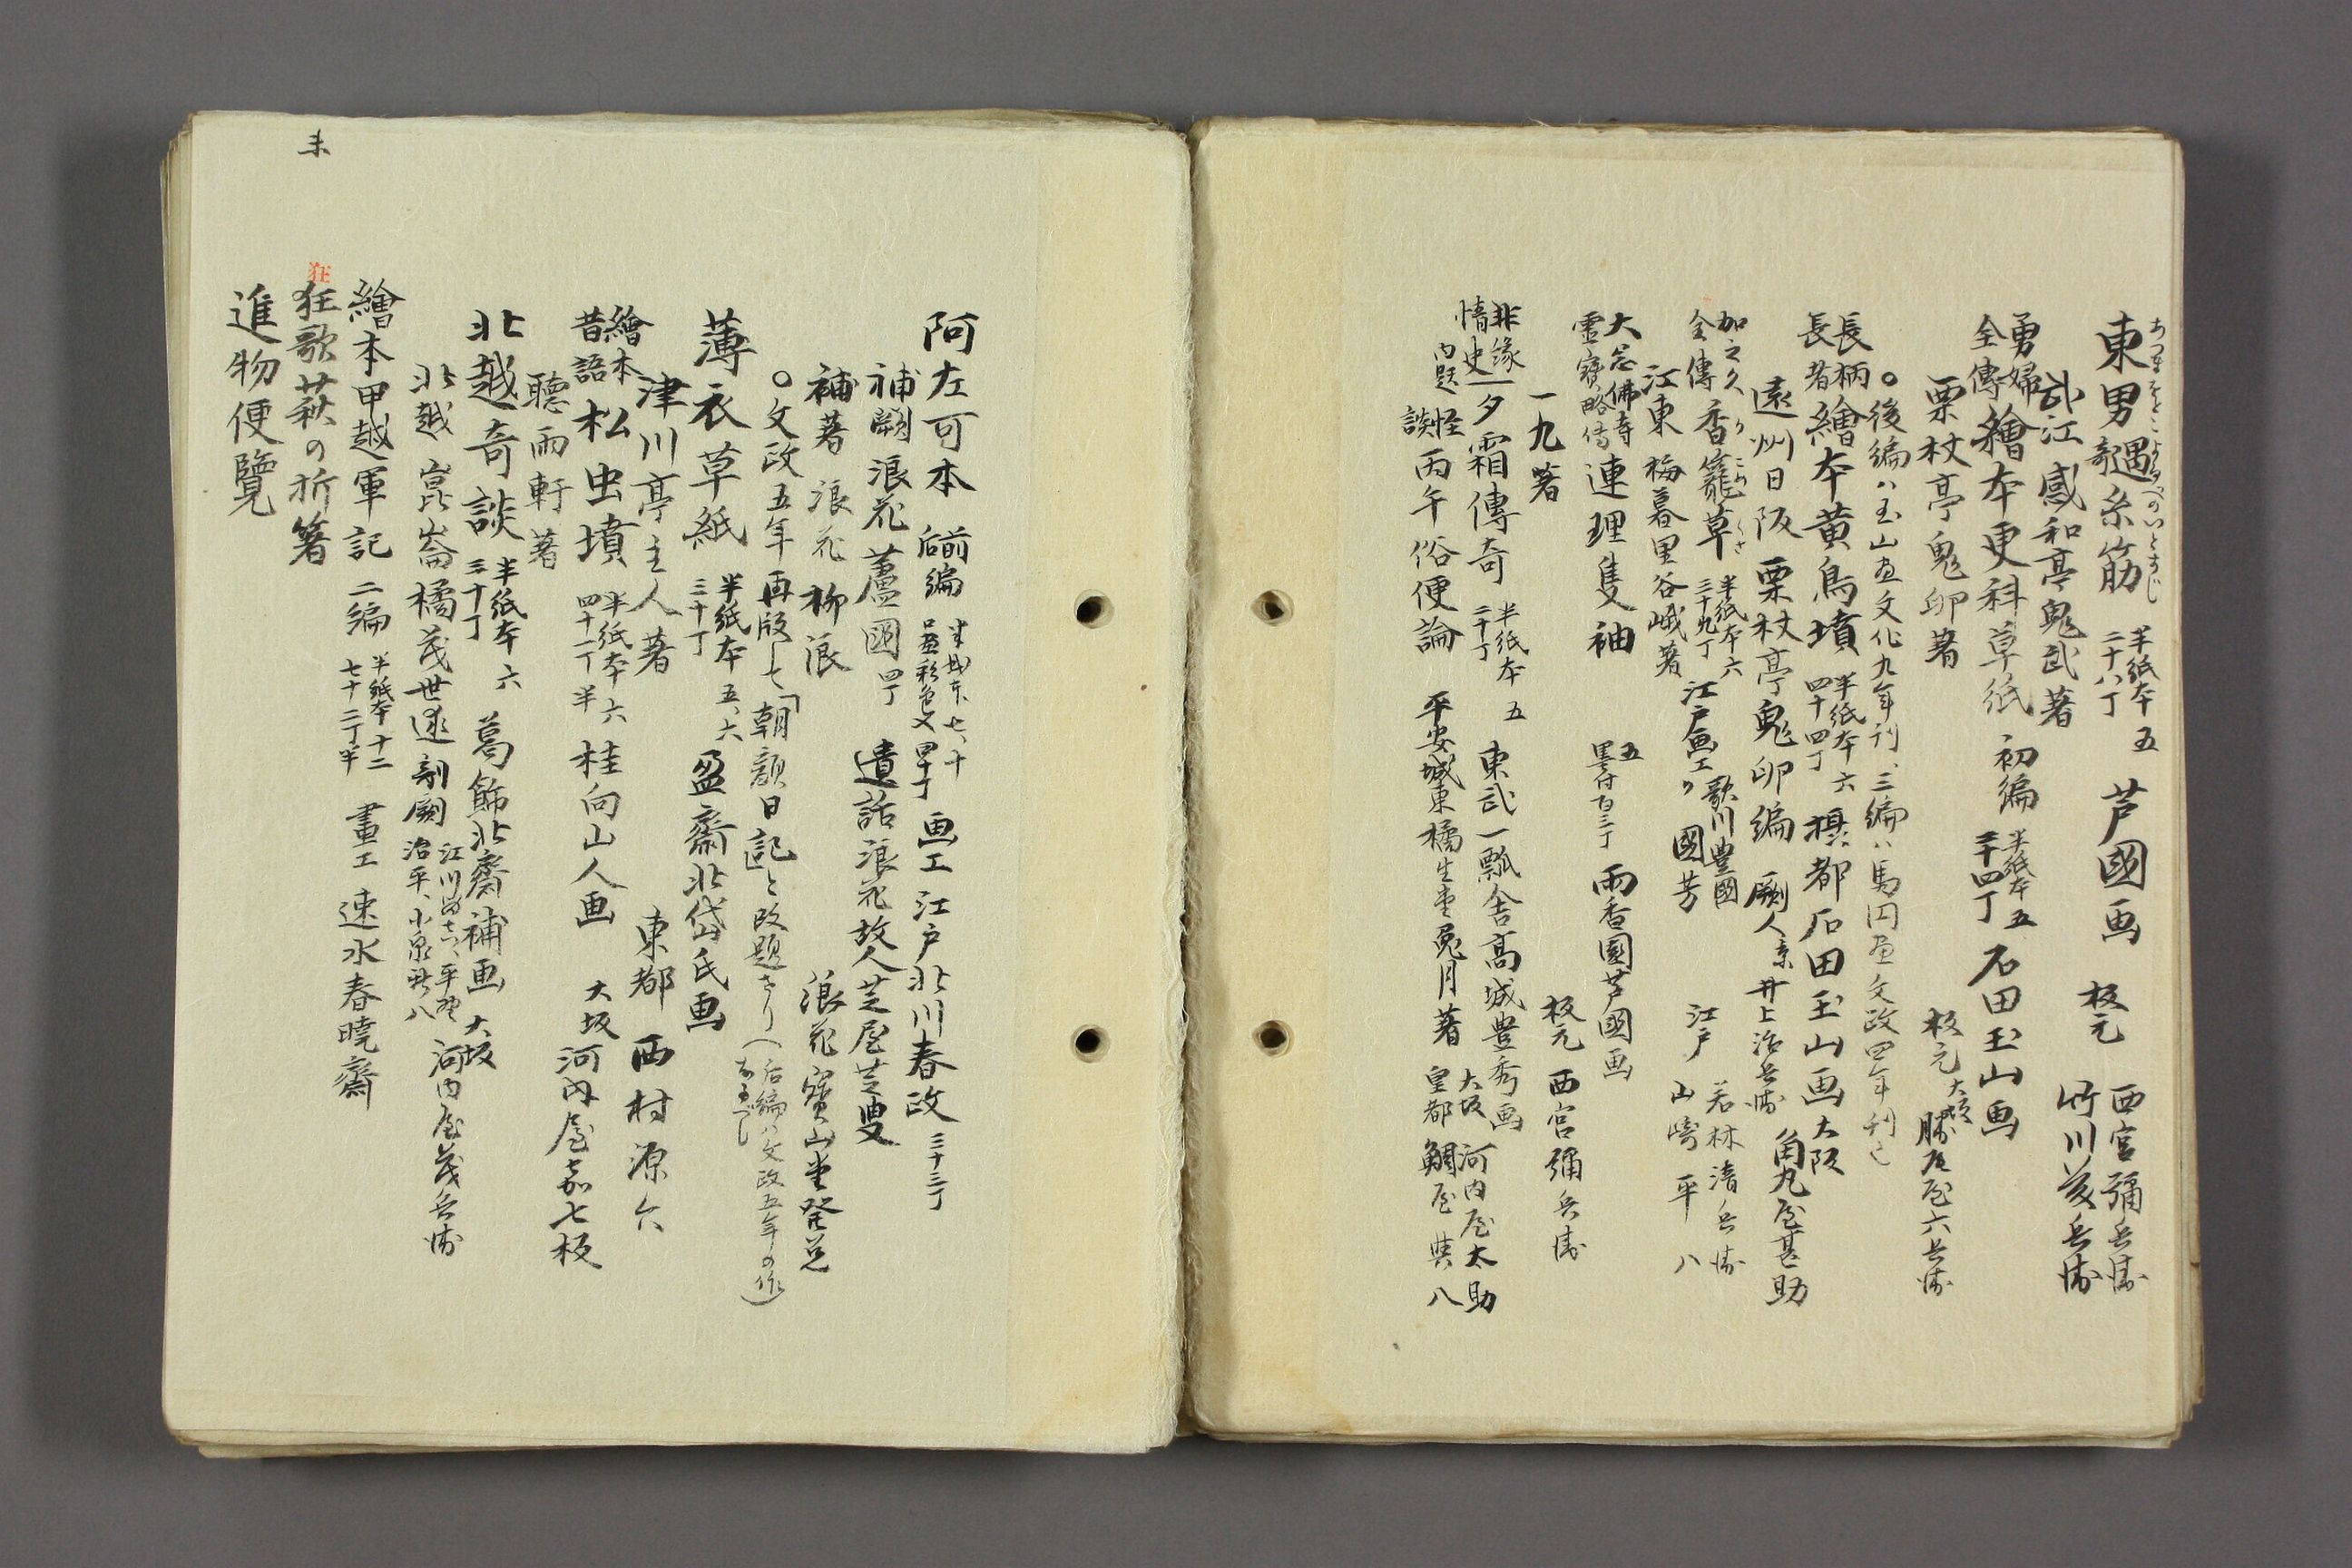 東男奇遇糸筋 半紙本 五 二十八丁 芦國画 板元 西宮彌兵衛
あづまをとこ よりべのいとすじ
武江 感和亭鬼武著 竹川藤兵衛
勇婦全傳 繪本更科草紙 初編 半紙本 五 三十四丁 石田玉山画
栗杖亭鬼卵著 板元 大坂 勝尾屋六兵衛
○後編ハ玉山画文化九年刊、三編ハ馬円画文政四年刊也
長柄長者 繪本黄鳥墳 半紙本 六 四十四丁 棋都 石田玉山画 大阪
遠州日阪 栗杖亭鬼卵編 劂人 井上治兵衛 角丸屋甚助
加之久全傳 香籠草 半紙本 六 三十九丁 江戸画工 歌川豊國 國芳 江戸 若林清兵衛
江東 梅暮里谷峨著 山崎平八
大念佛寺霊寶略傳 連理隻袖 五 墨付百三丁 雨香園芦國画
一九著 板元 西宮彌兵衛
非縁情史 一夕霜傳奇 半紙本 五 二十丁 東武一瓢舎高城豊秀画 大坂 河内屋太助
内題 怪談 丙午俗便論 平安城東橘生堂兎月著 皇都 鯛屋與八
阿左可本 前后編 半紙本、七、十 画工 江戸北川春政 三十三丁
補劂 浪花 蘆國 四丁 遺話 浪花故人芝屋芝叟
補著 浪花 柳浪 浪花 寳山堂発兌
○文政五年再版して「朝顔日記」と改題せり(后編ハ文政五年の作)
薄衣草紙 半紙本 五、六 三十丁 盈齋北岱氏画
津川亭主人著 東都 西村源六
繪本昔語 松虫墳 半紙本 六 四十一丁半 桂向山人画 大坂
聽雨軒著 河内屋嘉七板
北越奇談 半紙本 六 三十丁 葛飾北齋補画 大坂
北越 崑崙橘茂世述 剞劂 治平、小泉新八 河内屋茂兵衛
繪本甲越軍記 二編 半紙本 十二 七十二丁半 畫工 速水春曉齋
狂
狂歌萩の折箸
進物便覽